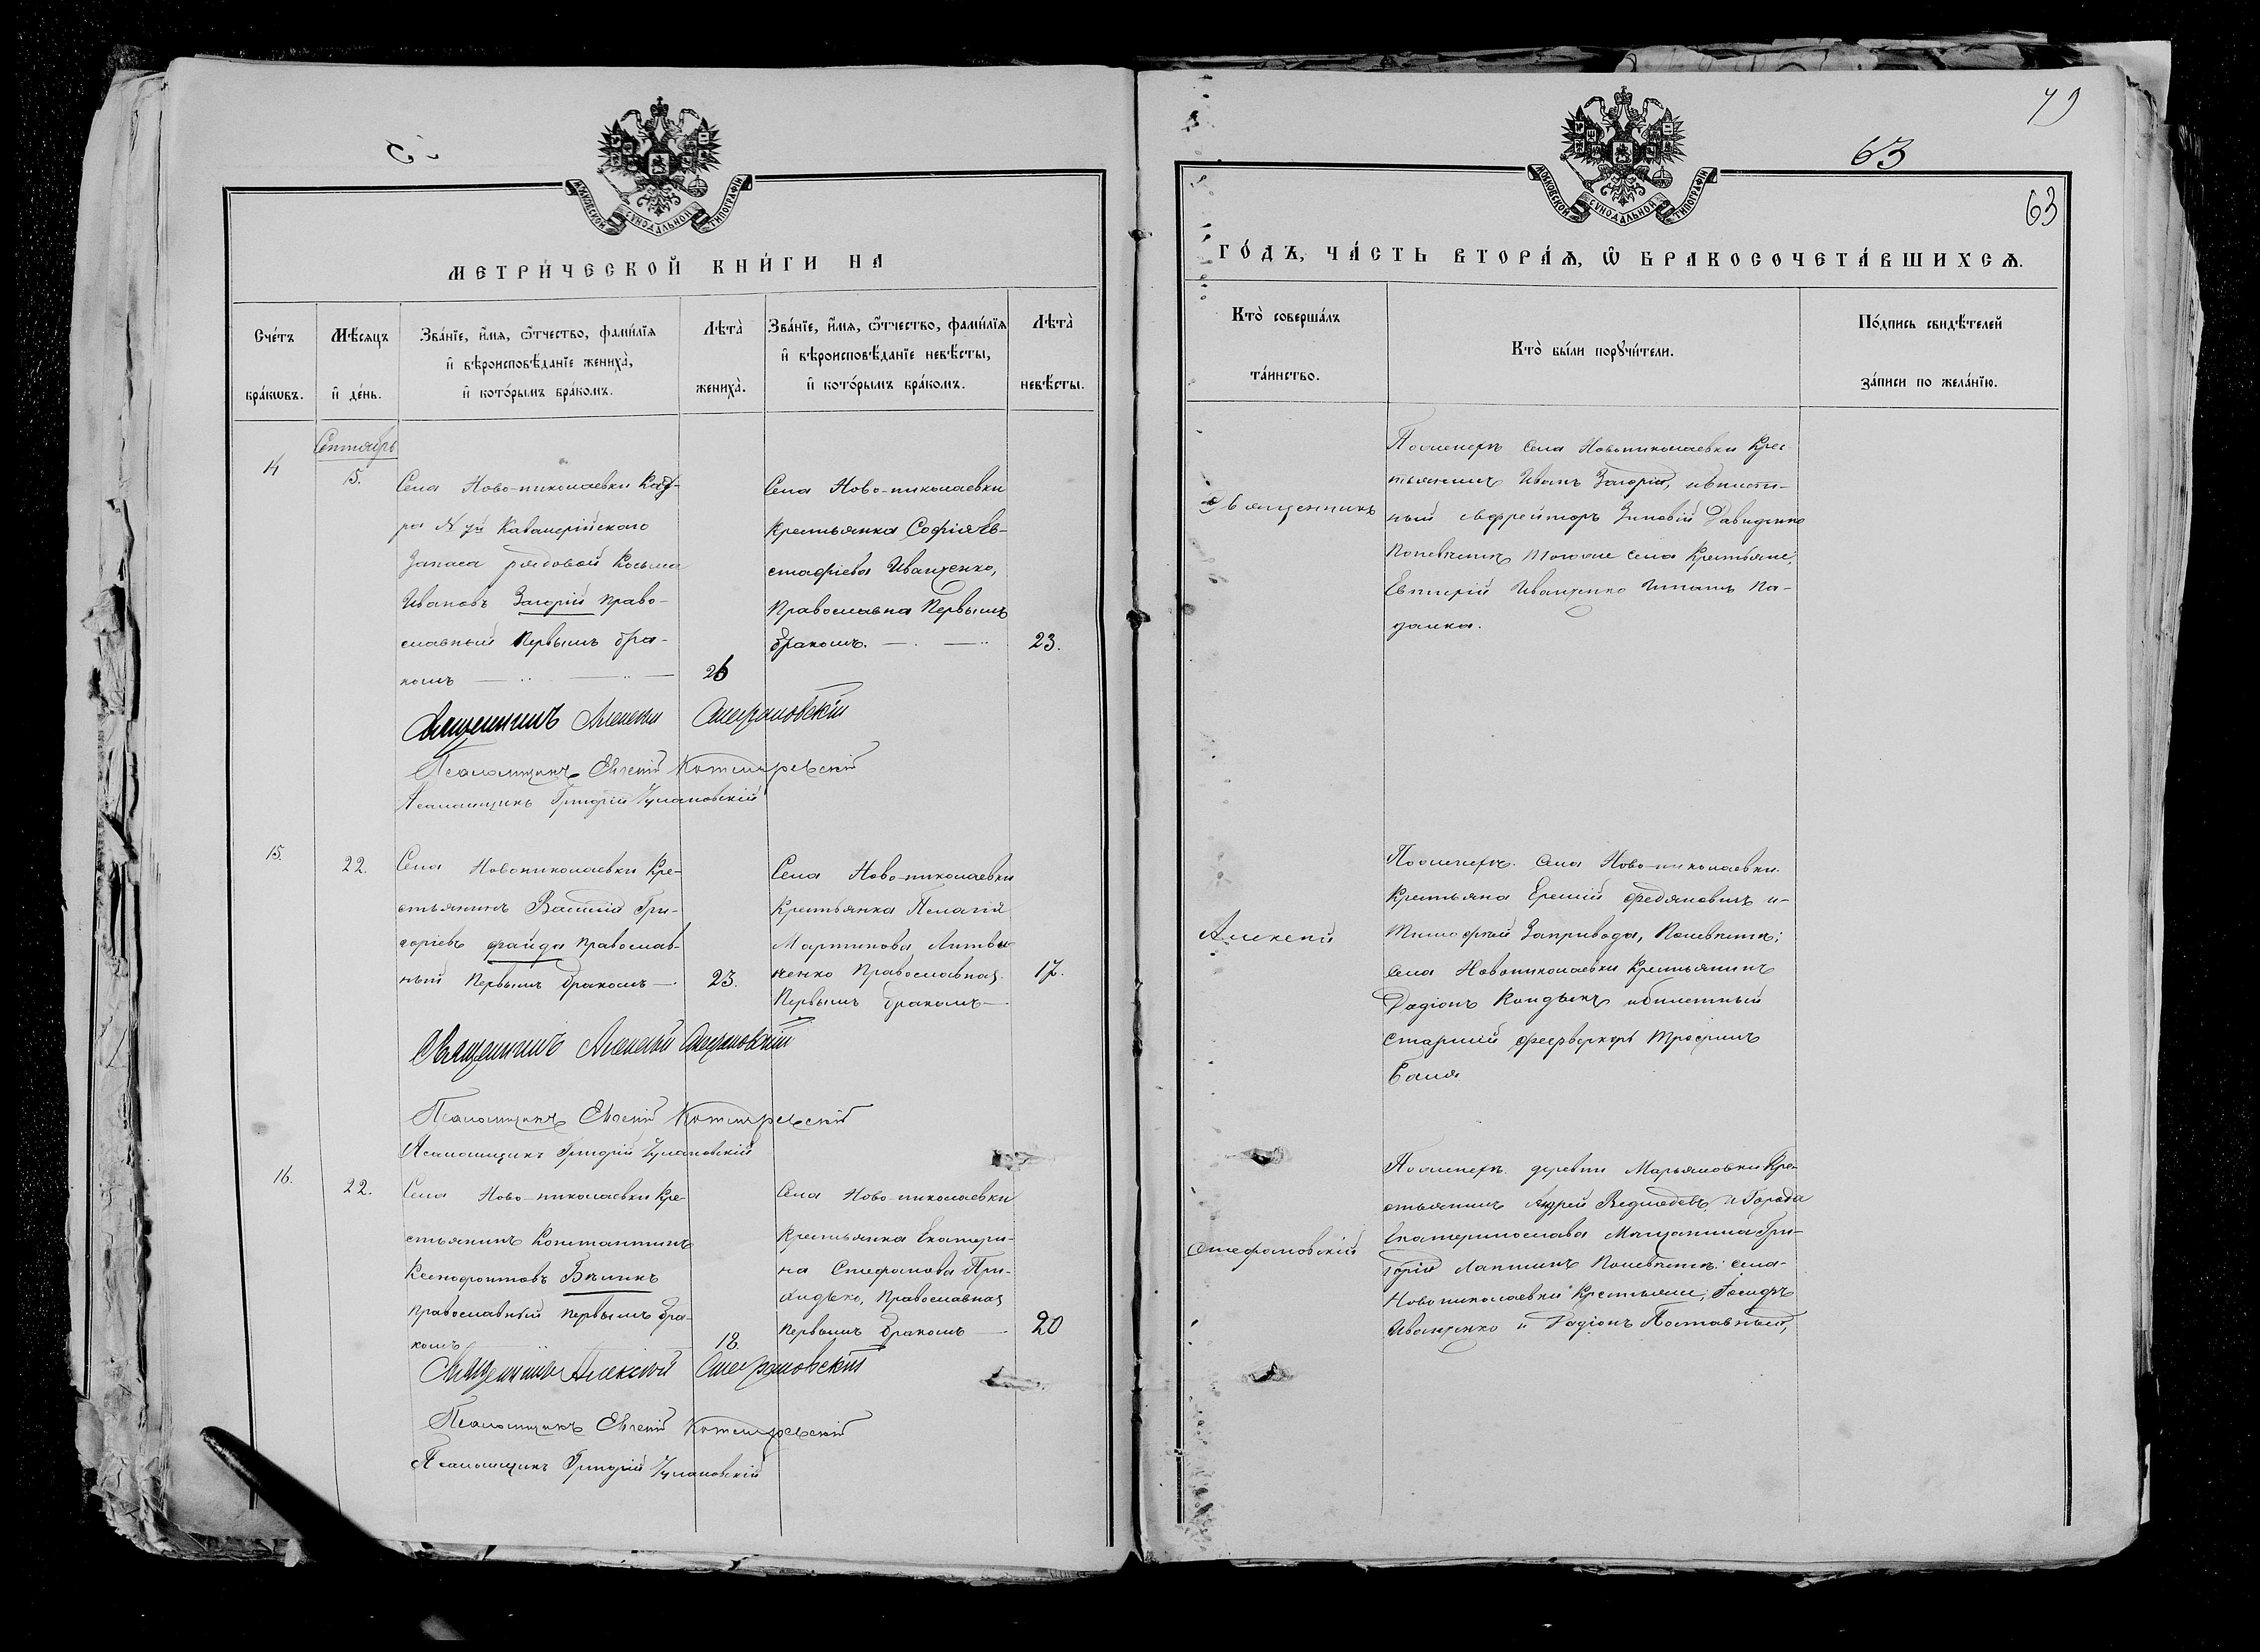 63
МОСКОВСКОЙ СѴНОДАЛЬНОЙ ТИПОГРАФІИ
МЕТРИ́ЧЕСКОЙ КНИ́ГИ НА
Сче́тъ бра́кѡвъ.
Мѣ́сяцъ и҆ де́нь.
Зва́нїе, и҆́мѧ, ѻ҆́тчество, фами́лїѧ
и҆ вѣроисповѣ́данїе жениха̀,
и҆ кото́рымъ бра́комъ.
Лѣта̀ жениха̀.
Зва́нїе, и҆́мѧ, ѻ҆́тчество, фами́лїѧ
и҆ вѣроисповѣ́данїе невѣ́сты,
и҆ кото́рымъ бра́комъ.
Лѣта̀ невѣ́сты.
Сентябрь
14
15.
Села Ново-николаевки Кад-
ра № Кавалерійскаго
Запаса рядовой Косьма
Ивановъ Загорій право-
славный первымъ бра-
комъ
26
Села Ново-николаевки
Крестьянка Софія Ев-
стафіева Иващенко,
Православна Первымъ
бракомъ.
23.
Священникъ Алексѣй Стефановскій
Псаломщикъ Евгеній Котляревскій
Псаломщикъ Григорій
15.
22.
Села Новониколаевки Кре-
стьянинъ Василій Гри-
горіевъ Файда православ-
ный Первымъ бракомъ
23.
Села Ново-николаевки
Крестьянка Пелагія
Мартинова Литви-
ненко Православная
Первымъ бракомъ
17.
Священникъ Алексѣй Стефановскій
Псаломщикъ Евгеній Котляревскій
Псаломщикъ Григорій
16.
22.
Села Ново-николаевки Кре-
стьянинъ Константинъ
Ксенофонтовъ Бѣликъ
православный первымъ бра-
комъ
18.
Села Ново-николаевки
Крестьянка Екатери-
на Стефанова При-
ходько, Православная
Первымъ бракомъ
20
Священникъ Алексѣй Стефановскій
Псаломщикъ Евгеній Котляревскій
Псаломщикъ Григорій
79
63
МОСКОВСКОЙ СѴНОДАЛЬНОЙ ТИПОГРАФІИ
ГО́ДЪ, ЧА́СТЬ ВТОРА́Ѧ, Ѡ҆ БРАКОСОЧЕТА́ВШИХСѦ.
Кто̀ соверша́лъ та́инство.
Кто̀ бы́ли порꙋчи́тели.
По́дпись свидѣ́телей
за́писи по жела́нїю.
Священникъ
Алексѣй
Стефановскій
По женихѣ села Новониколаевки Крес-
тьянинъ Иванъ Загорій, и билет-
ный ефрейторъ Зиновій Давиденко
По невѣстѣ того же села Крестьяне;
Иващенко Игнатъ Па-
По женихѣ. села Ново-николаевки
Крестьяне Еремій Федяновичъ и
Тимофей Запривода, По невѣстѣ;
села Новониколаевки Крестьянинъ
Радіонъ и билетный
старшій феерверкеръ Трофимъ
Баля
По женихѣ. деревни Марьяновки Кре-
стьянинъ Андрей Ведмедевъ, и Города
Екатеринослава Мѣщанинъ Гри-
горій Лаптинъ По невѣстѣ: села
Новониколаевки Крестьяне; Іосифъ
Иващенко и Радіонъ Поставный,